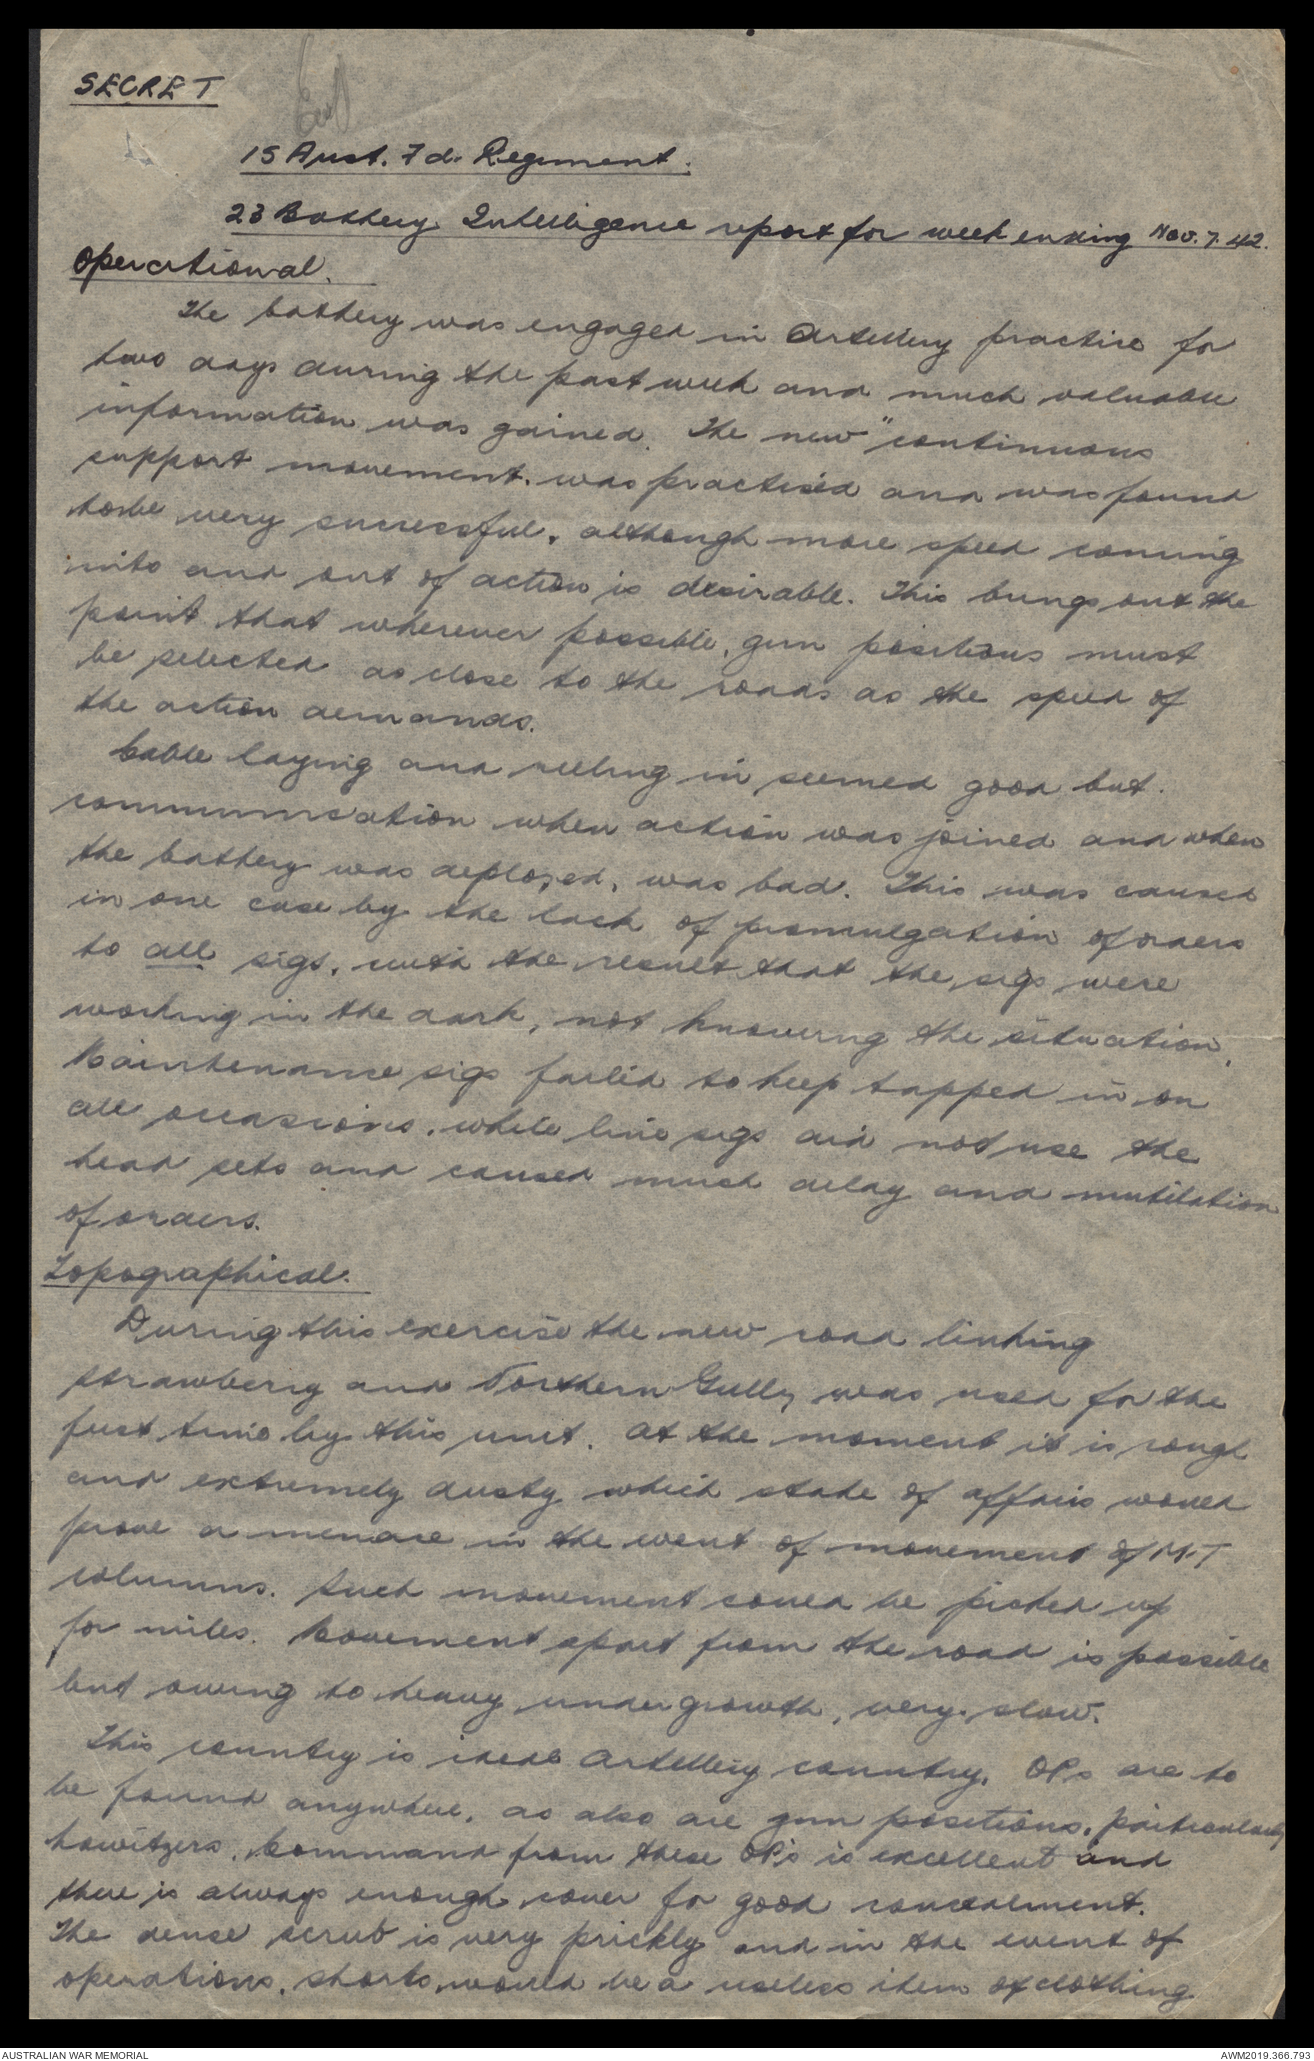 SECRET
15 Aust. Fd. Regiment.
23 Battery Intelligence report for week ending Nov. 7. 42.
Operational.
The battery was engaged in Artillery practice for
two days during the past week and much valuable
information was gained. The new "continuous
support movement. was practised and was found
to be very successful, although more speed coming
into and out of action is desirable. This brings out the
point that wherever possible, gun positions must
be selected as close to the roads as the speed of
the action demands.
Cable laying and reeling in seemed good but.
communication when action was joined and when
the battery was deployed, was bad. This was caused
in one case by the lack of promulgation of orders
to all sigs, with the result that the sigs were
working in the dark, not knowing the situation.
Maintenance sigs failed to keep tapped in on
all occasions, while line sigs did not use the
head sets and caused much delay and mutilation
of orders.
Topographical.
During this exercise the new road linking
Strawberry and Northern Gully was used for the
first time by this unit. At the moment it is rough
and extremely dusty which state of affairs would
prove a menace in the event of movement of M.T
columns. Such movement could be picked up
for miles. Movement apart from the road is possible
but owing to heavy undergrowth, very slow.
This country is ideal Artillery country. OPs are to
be found anywhere, as also are gun positions, particularly
howitzers. Command from these OPs is excellent and
there is always enough cover for good concealment.
The dense scrub is very prickly and in the event of
operations, shorts would be a useless item of clothing
AUSTRALIAN WAR MEMORIAL
AWM2019.366.793